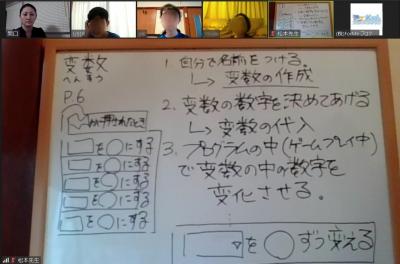 関口
松本先生
変数
へんすう
P.6
が押されたとき
□を○にする
□を○にする
□を○にする
□を○にする
□を○にする
1. 自分で名前をつける。
↳ 変数の作成
2. 変数の数字を決めてあげる
↳ 変数の代入
3. プログラムの中(ゲームプレイ中)
で変数の中の数字を
変化させる。
□を○ずつ変える
松本先生